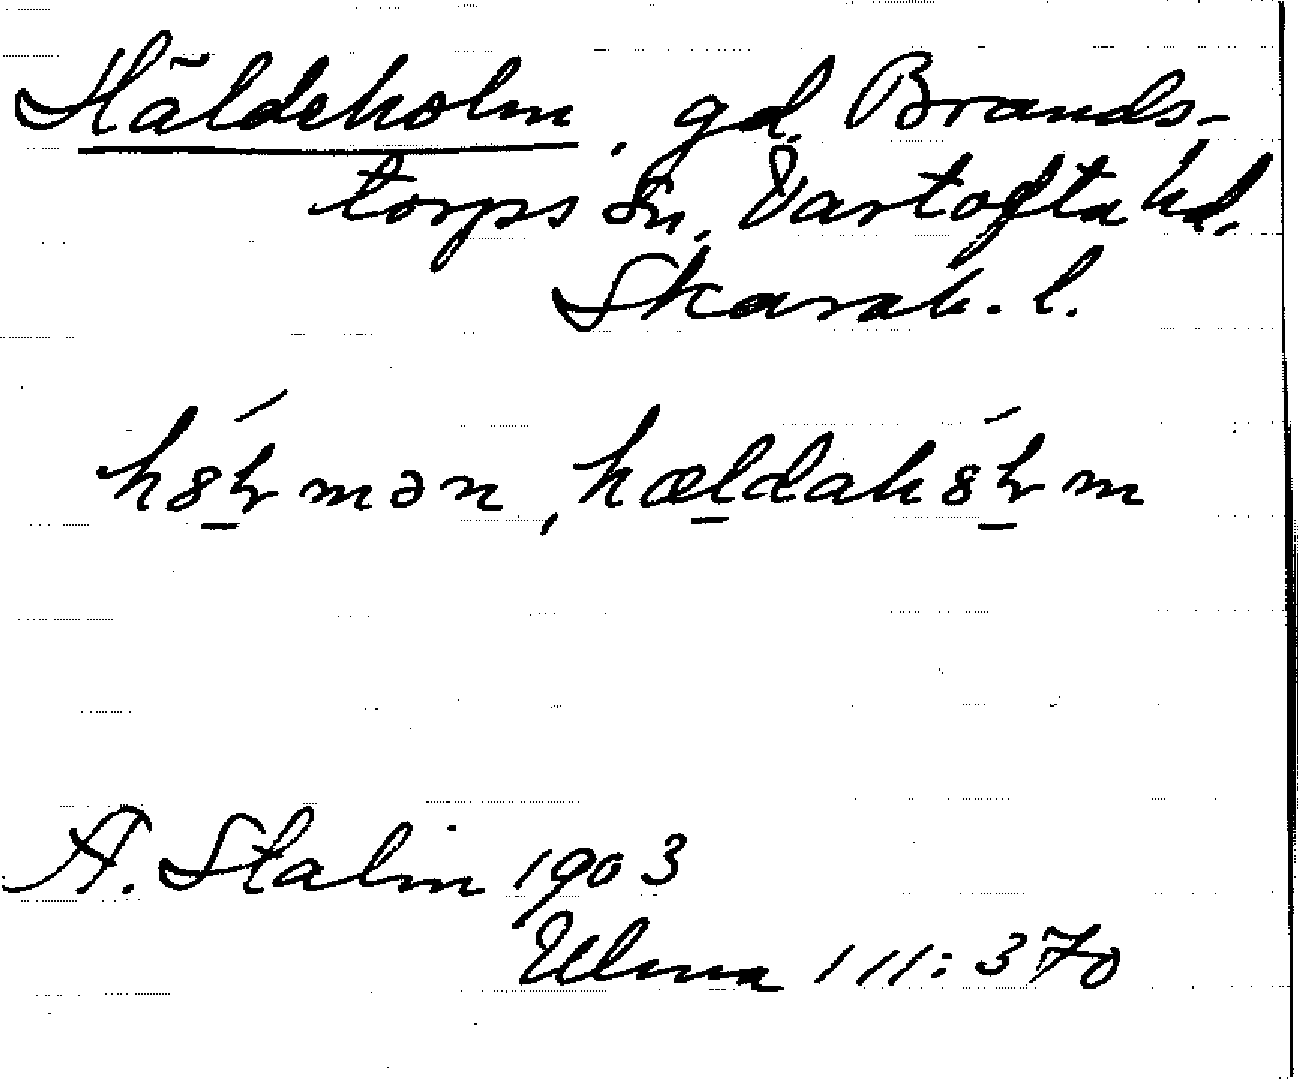 Häldeholm, gd. Brands-
torps sn, Vartofta hd.
Skarab. l.
A. Stalin 1903
Ulma 111:370